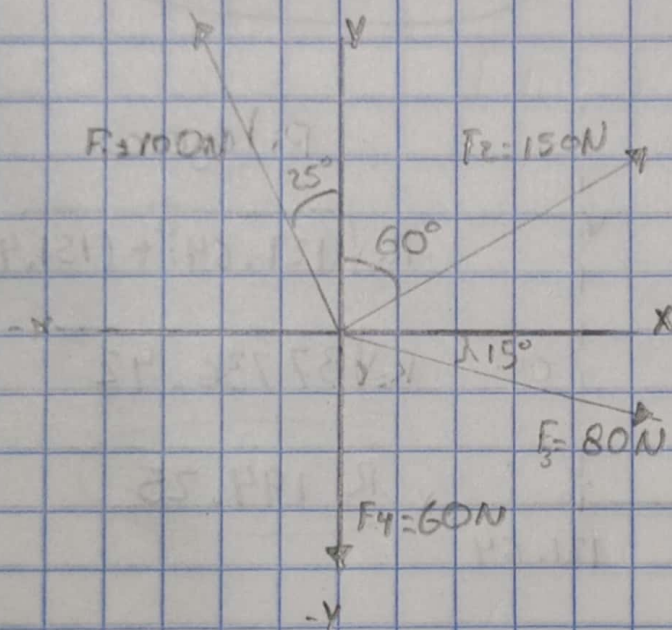 Y
F1=100N
F2=150N
25°
60°
-X
X
15°
F3=80N
F4=60N
-Y